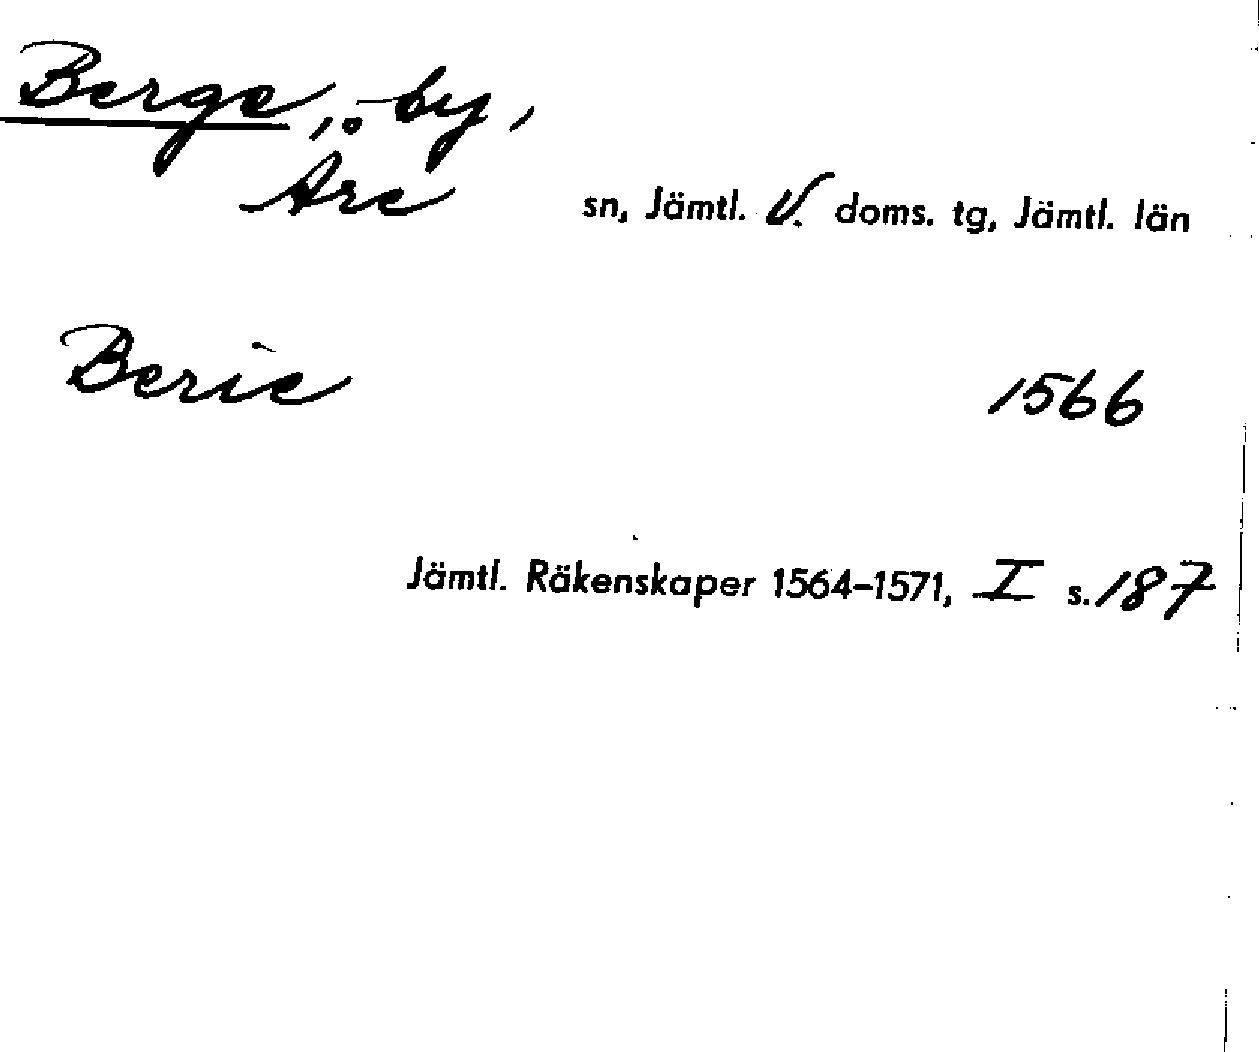 Berge, by,
Åre sn, Jämtl. V. doms. tg, Jämtl. län
Berie 1566
Jämtl. Räkenskaper 1564-1571, I s. 187